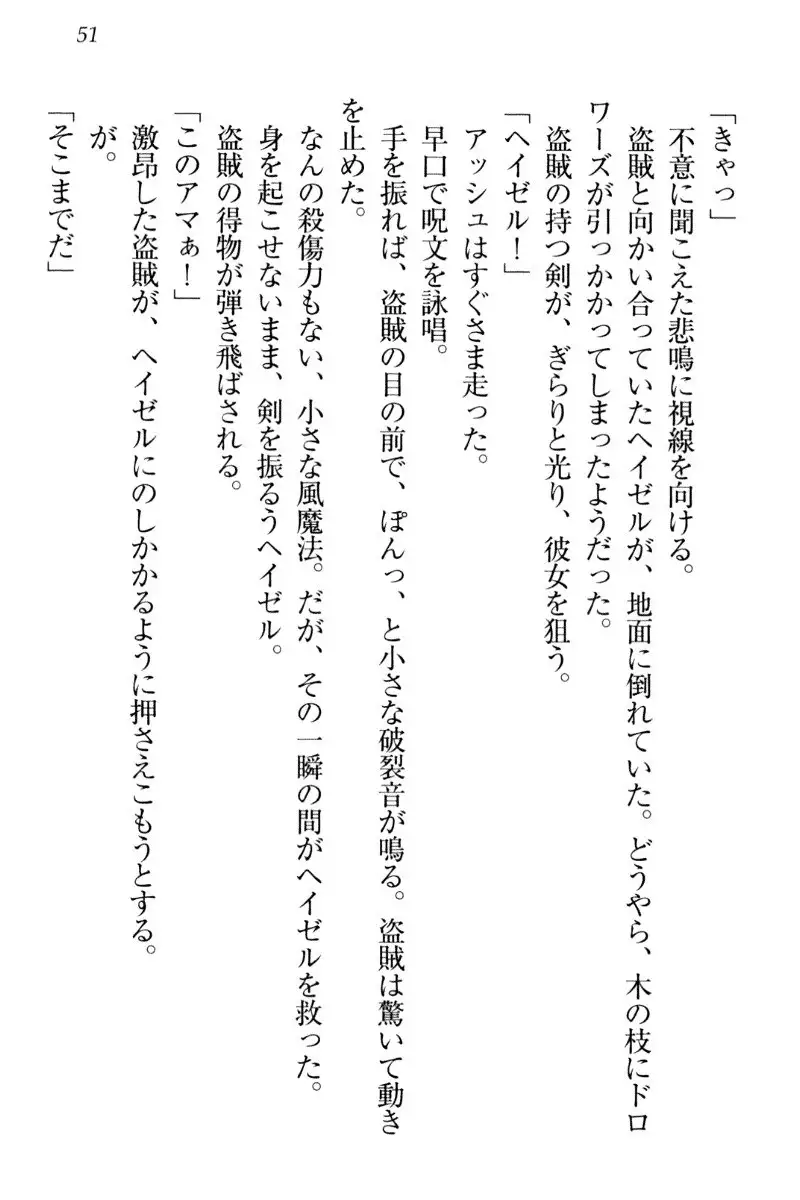 51
「きゃっ」
不意に聞こえた悲鳴に視線を向ける。
盗賊と向かい合っていたヘイゼルが、地面に倒れていた。どうやら、木の枝にドロ
ワーズが引っかかってしまったようだった。
盗賊の持つ剣が、ぎらりと光り、彼女を狙う。
「ヘイゼル！」
アッシュはすぐさま走った。
早口で呪文を詠唱。
手を振れば、盗賊の目の前で、ぽんっ、と小さな破裂音が鳴る。盗賊は驚いて動き
を止めた。
なんの殺傷力もない、小さな風魔法。だが、その一瞬の間がヘイゼルを救った。
身を起こせないまま、剣を振るうヘイゼル。
盗賊の得物が弾き飛ばされる。
「このアマぁ！」
激昂した盗賊が、ヘイゼルにのしかかるように押さえこもうとする。
が。
「そこまでだ」